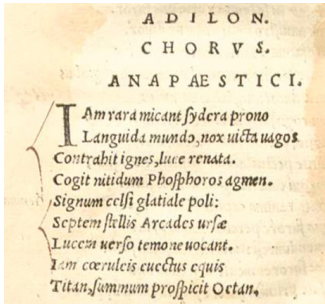 ADILON.
CHORVS.
ANAPAESTICI.
IAm rara micant sydera prono
Languida mundo, nox victa vagos
Contrahit ignes, luce renata.
Cogit nitidum Phosphoros agmen.
Signum celsi glatiale poli:
Septem stellis Arcades ursæ
Lucem verso temone uocant.
Iam cœruleis euectus equis
Titan, summum prospicit Oetan.